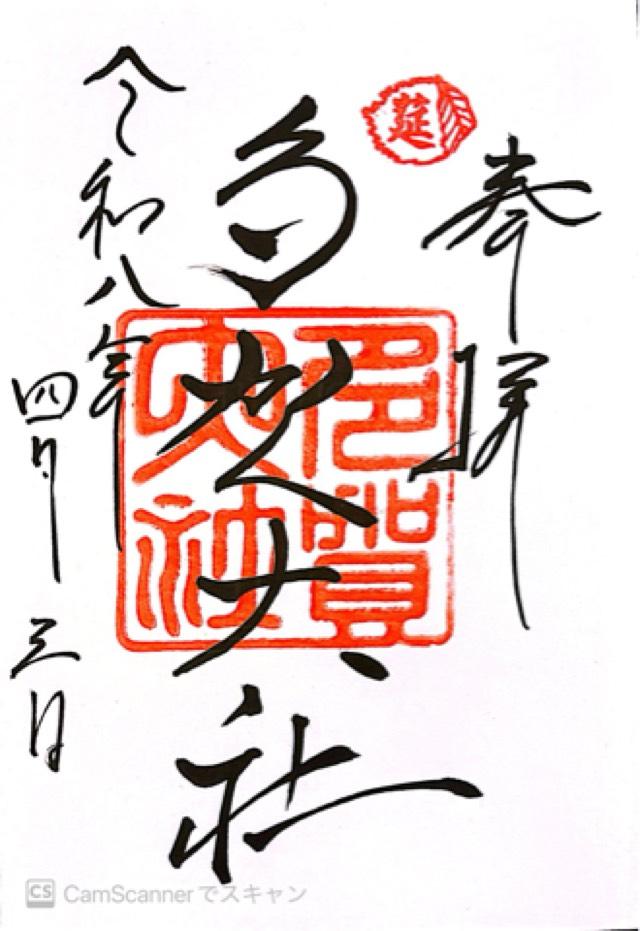 奉拝
莚
多賀大社
多賀
大社
令和八年
四月三日
CS CamScannerでスキャン